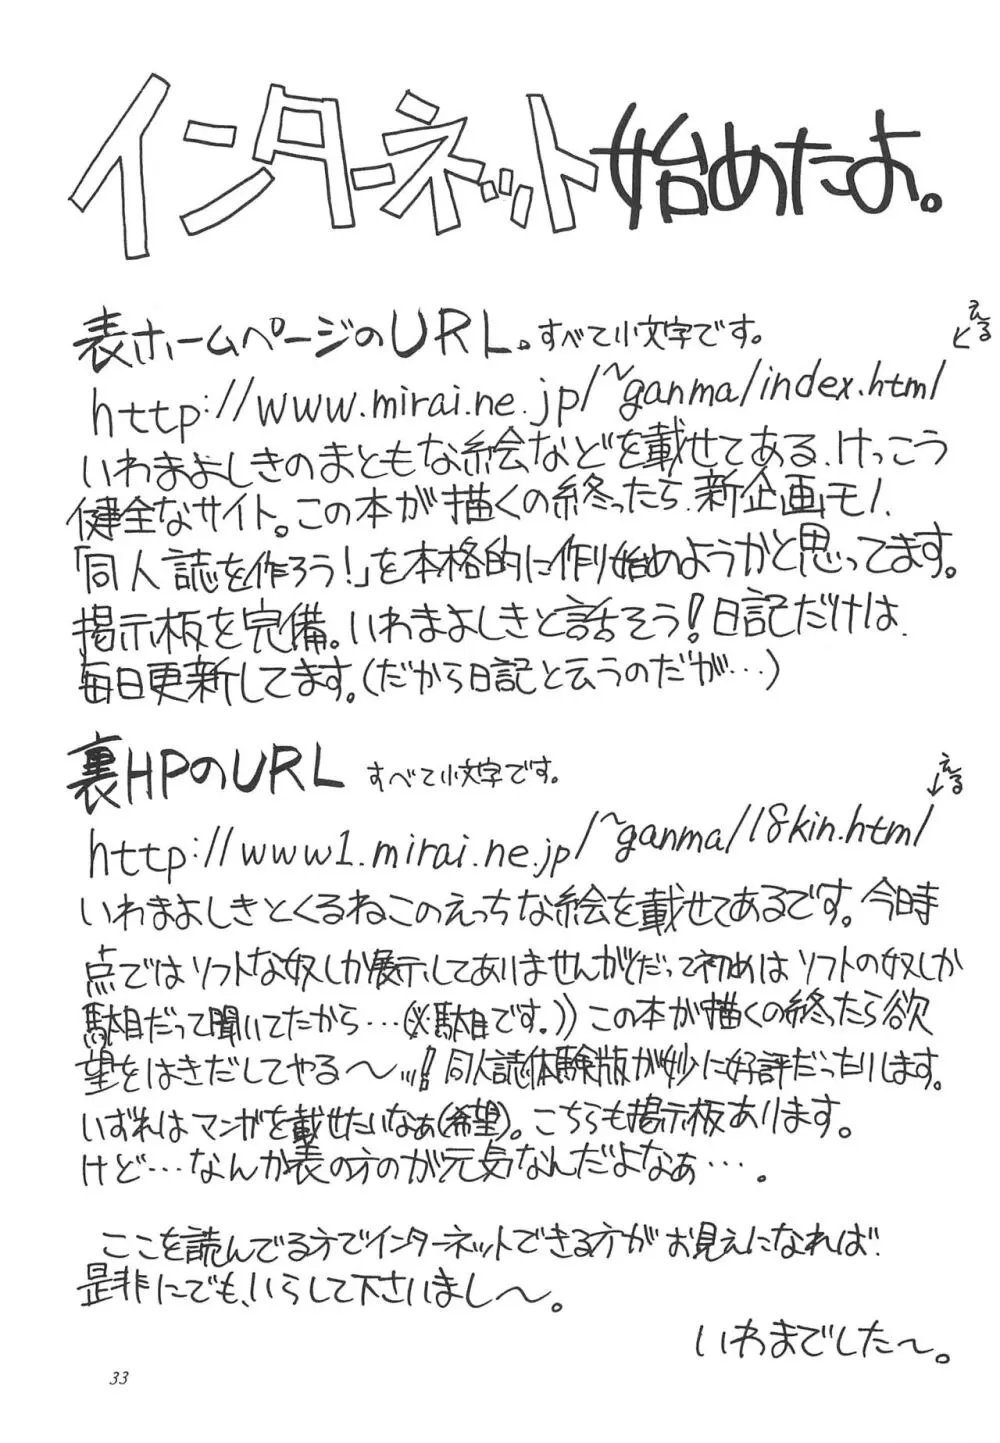 インターネット始めたよ。
表ホームページのURL。すべて小文字です。
える
http://www.mirai.ne.jp/~ganma/index.html
いわまよしきのまともな絵などを載せてある、けっこう
健全なサイト。この本が描くの終ったら、新企画モノ、
「同人誌を作ろう!」を本格的に作り始めようかと思ってます。
掲示板を完備。いわまよしきと話そう!日記だけは、
毎日更新してます。(だから日記と云うのだが…)
裏HPのURL すべて小文字です。
える
http://www1.mirai.ne.jp/~ganma/18kin.html
いわまよしきとくるねこのえっちな絵を載せてあるです。今日時
点ではソフトな奴しか展示してありませんがだって初めはソフトの奴しか
駄目だって聞いてたから…(※駄目です。))この本が描くの終ったら欲
望をはきだしてやる〜!!同人誌体験版が妙に好評だったりします。
いずれはマンガを載せたいなぁ(希望)。こちらも掲示板あります。
けど…なんか表の方のが元気なんだよなぁ…。
ここを読んでる方でインターネットできる方がお見えになれば
是非にでも、いらして下さいまし〜。
いわまでした〜。
33